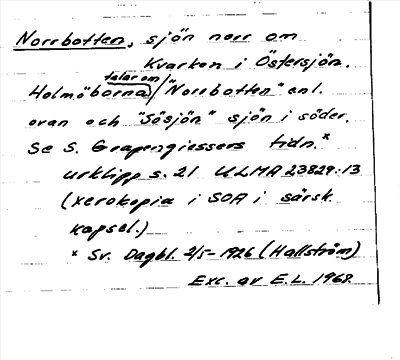 Norrbotten, sjön norr om
Kvarken i Östersjön.
Holmöborna talar om "Norrbotten" enl.
ovan och "Sösjön" sjön i söder.
Se S. Grapengiessers tidn.*
urklipp s. 21 ULMA 23829:13
(xerokopia i SOA i särsk.
kapsel.)
* Sv. Dagbl. 2/5-1926 (Hallström)
Exc. av E.L. 1968.